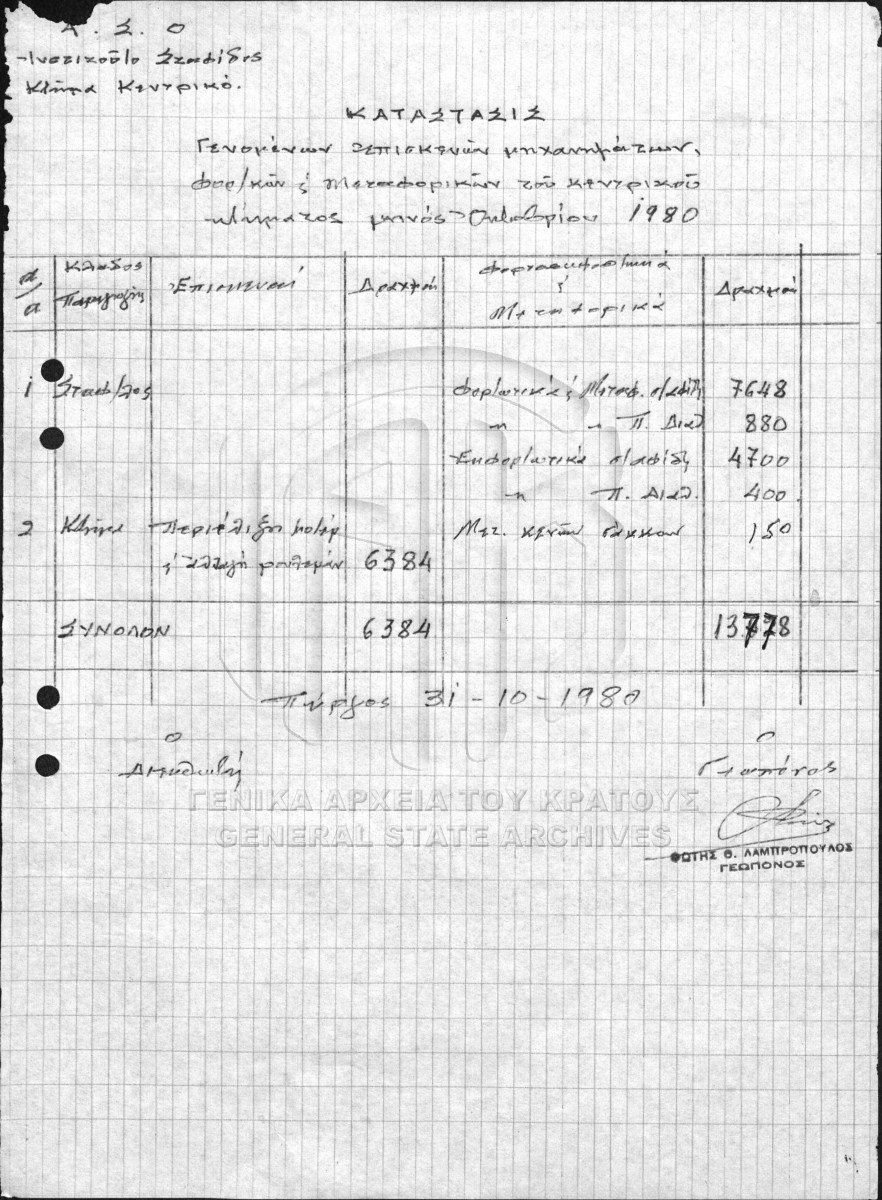 Α. Σ. Ο
Ινστιτούτο Σταφίδος
Κτήμα Κεντρικό.
ΚΑΤΑΣΤΑΣΙΣ
Γενομένων επισκευών μηχανημάτων,
φορ/κών & Μεταφορικών του κεντρικού
κτήματος μηνός Οκτωβρίου 1980
α/α
Κλάδος Παραγωγής
Επισκευαί
Δραχμαί
& Μεταφορικά
Δραχμαί
1 Φορτωτικά & Μεταφ. σταφίδ 7648
" " Π. Διαλ 880
Εκφορτωτικά σταφίδ 4700
" Π. Διαλ. 400
2 Κτήμα Περιέλιξη μοτέρ Μετ. κενών σάκκων 150
& αλλαγή ρουλεμάν 6384
ΣΥΝΟΛΟΝ 6384 13778
Πύργος 31-10-1980
Ο Ο
Αποθηκ Γεωπόνος
ΓΕΝΙΚΑ ΑΡΧΕΙΑ ΤΟΥ ΚΡΑΤΟΥΣ
GENERAL STATE ARCHIVES
ΦΩΤΗΣ Θ. ΛΑΜΠΡΟΠΟΥΛΟΣ
ΓΕΩΠΟΝΟΣ